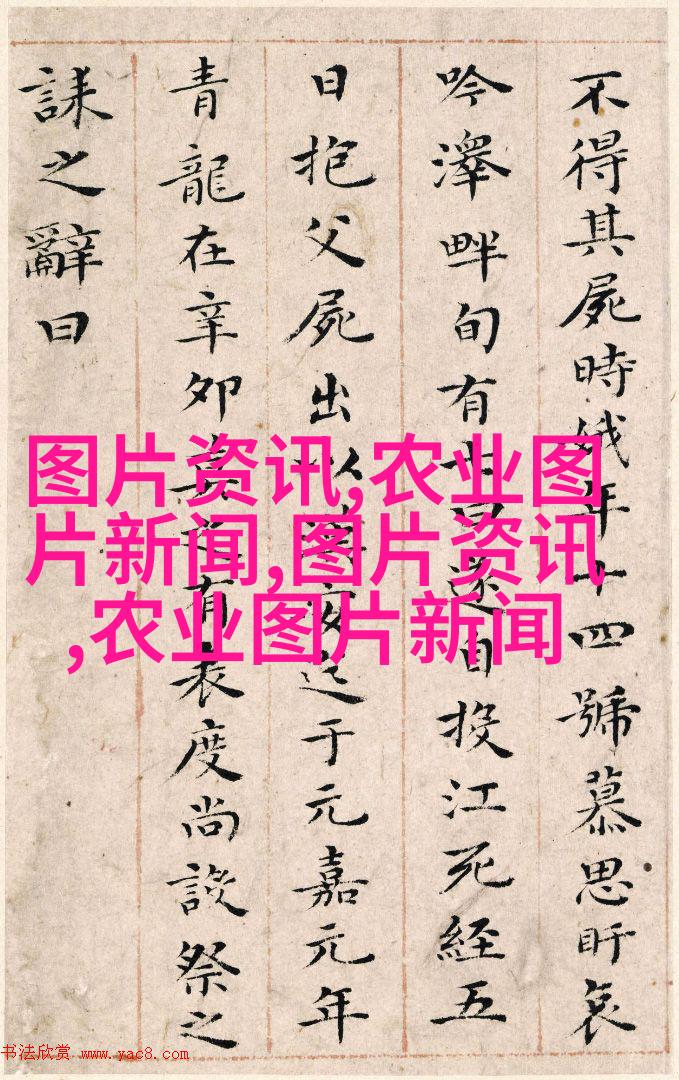 不得其屍時娥年十四號慕思盱哀
吟澤畔旬有七日遂自投江死經五
日抱父屍出以漢安迄于元嘉元年
青龍在辛卯莫之有表度尚設祭之
誄之辭曰
图片资讯,农业图
片新闻,图片资讯
,农业图片新闻
书法欣赏 www.yac8.com